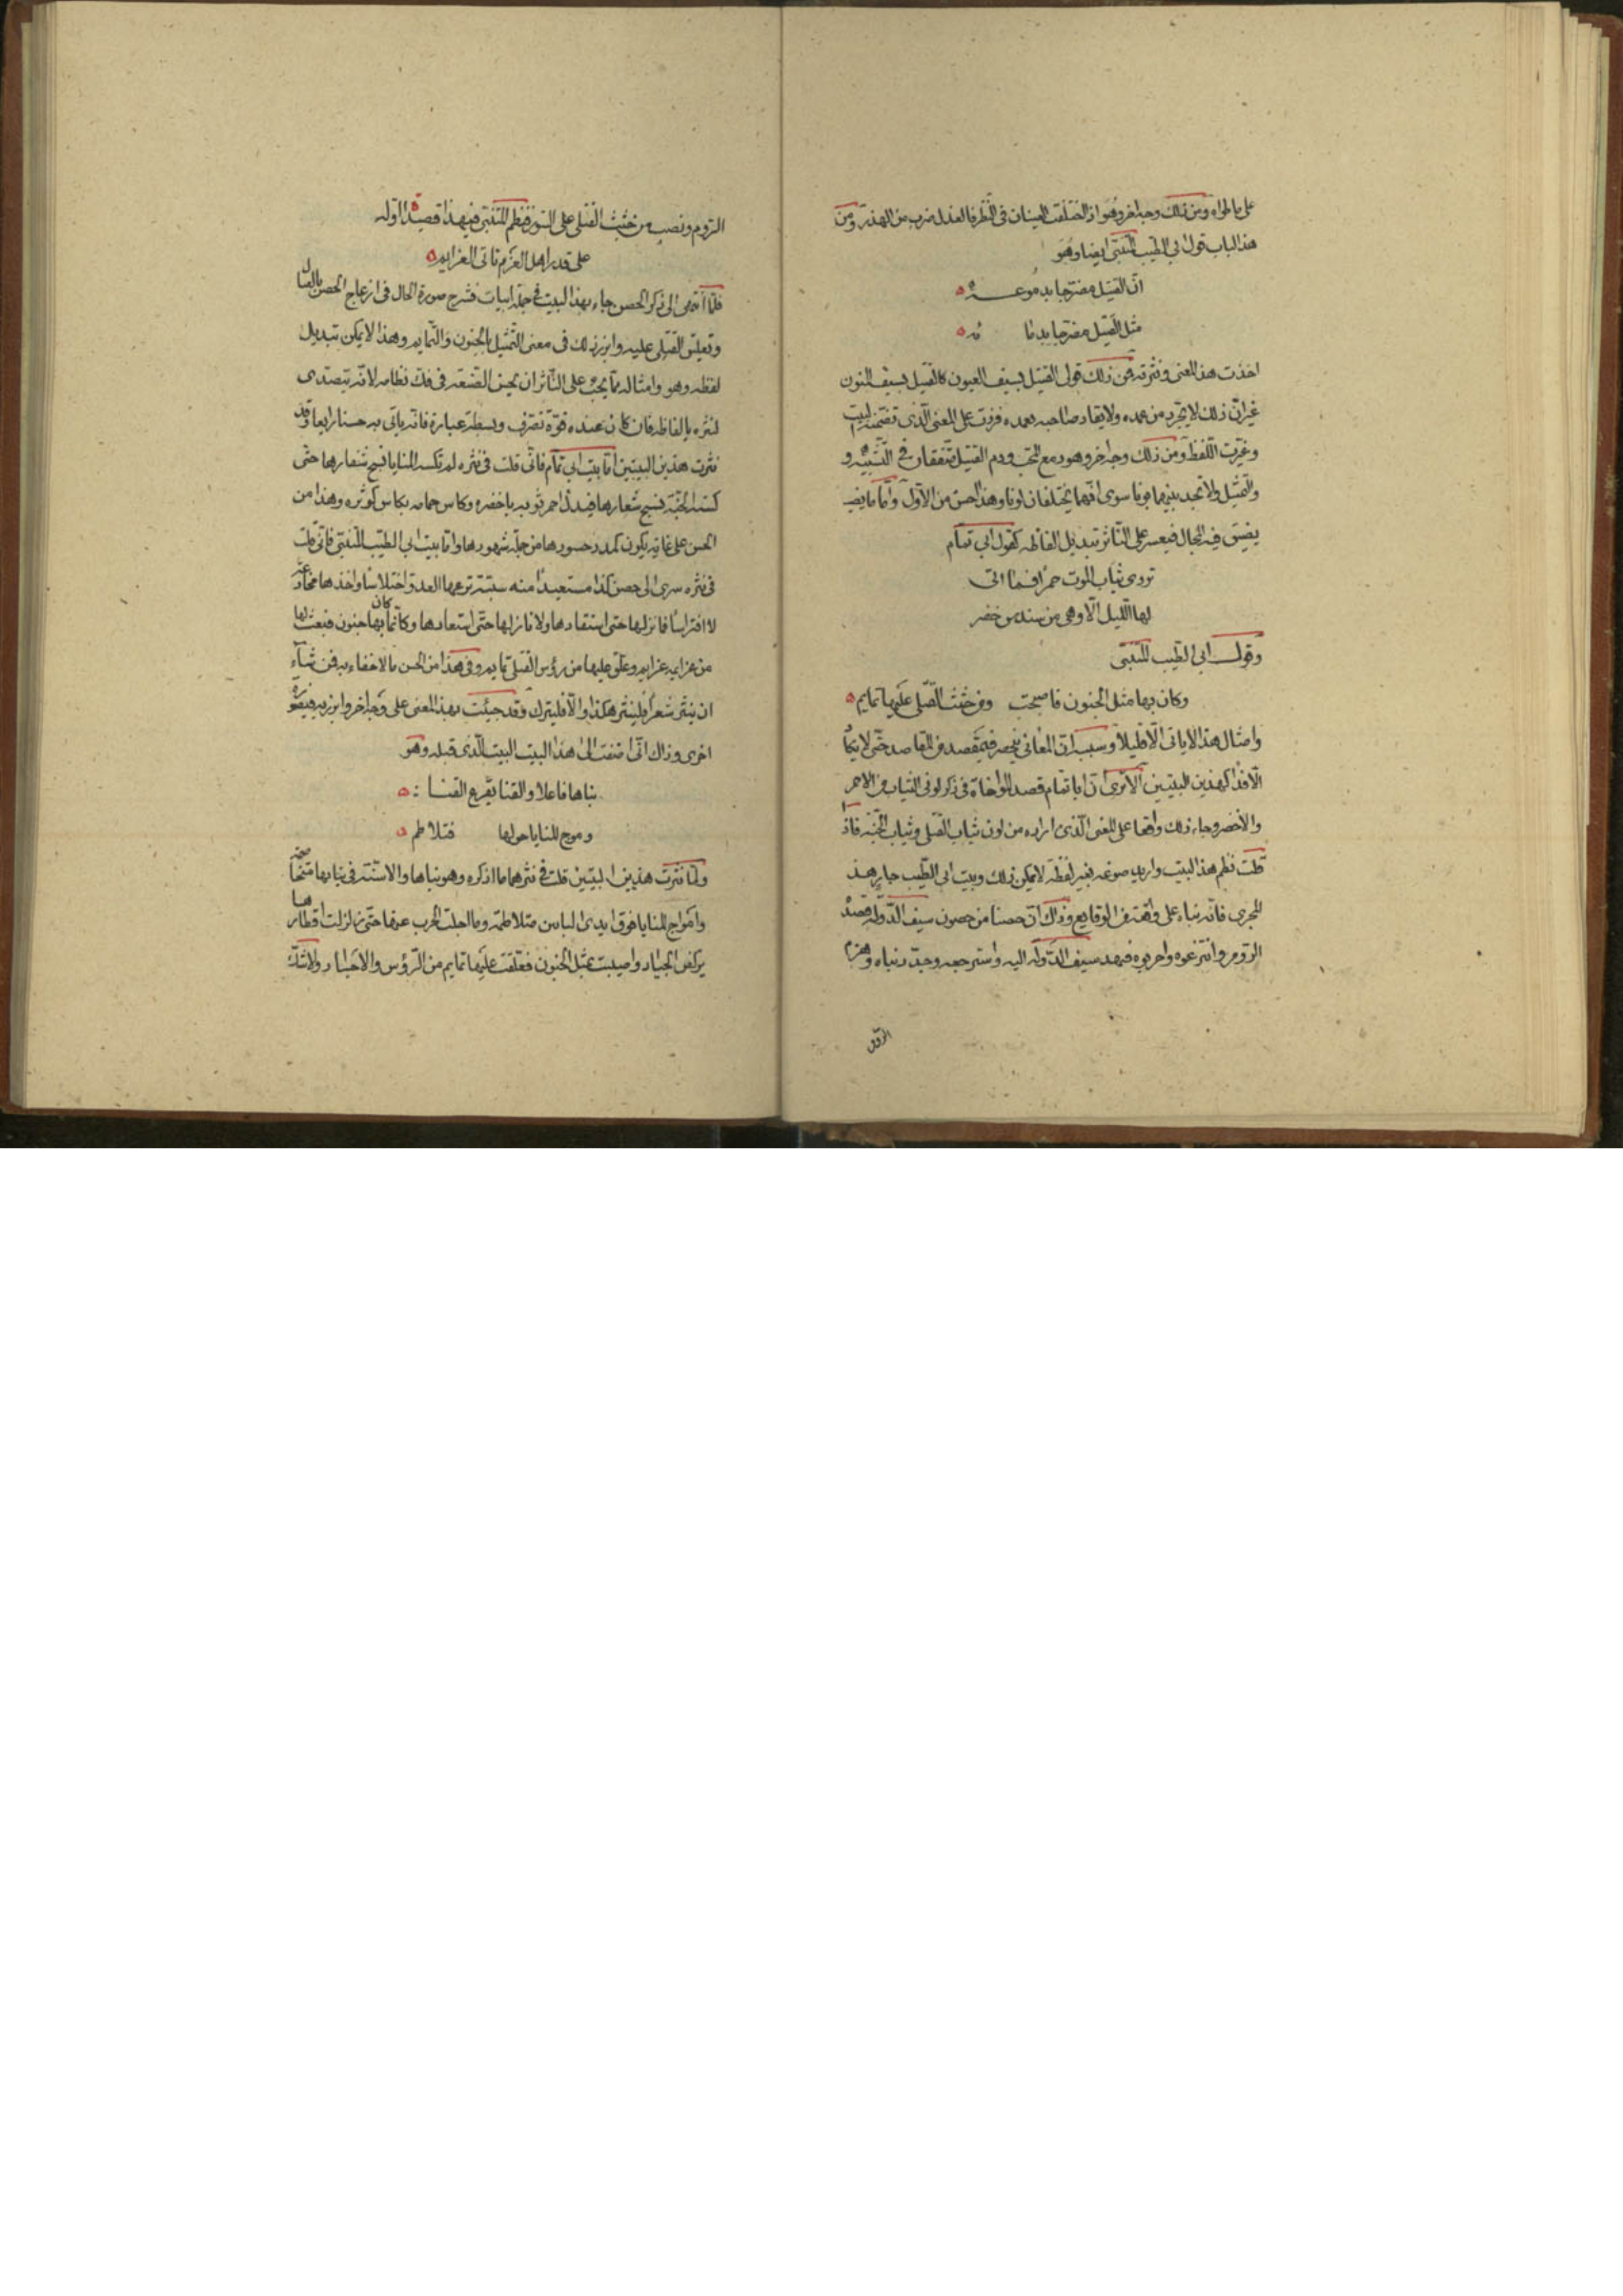 على ما طواه ومن ذلك وجه اخر وهو اذا اختلفت العينان في النظر فالعذل ضرب من الهذر ومن
هذا الباب قول ابي الطيب المتنبي ايضا وهو
ان القتيل مضرجا بدموعه
مثل القتيل مضرجا بدمائه
اخذت هذا المعنى ونثرته فمن ذلك قولي القتيل بسيف العيون كالقتيل بسيف المنون
غير ان ذلك لا يجرد من غمده ولا يقاد صاحبه بعمده فزدت على المعنى الذي تضمنه البيت
وغيرت اللفظ ومن ذلك وجه اخر وهو دمع المحب ودم القتيل متفقان في التشبيه و
والتمثيل ولا تجد بينهما بونا سوى انهما يختلفان لونا وهذا احسن من الاول واما ما يضيـ
يضيق فيه المجال فيعسر على الناثر تبديل الفاظه كقول ابي تمام
تردى ثياب الموت حمرا فما اتى
لها الليل الا وهي من سندس خضر
وقول ابي الطيب المتنبي
وكان بها مثل الجنون فاصبحت ومن جثث القتلى عليها تمايم
وامثال هذا لا ياتي الا قليلا وسبب ان المعاني ينحصر في مقصد من المقاصد حتى لا يكاد
الا فذا كهذين البيتين الا ترى ان ابا تمام قصد المواخاة في ذكر لوني الثياب من الاحمر
والاخضر وجاء ذلك واقعا على المعنى الذي اراده من لون ثياب القتلى وثياب الجنة فاذا
فكت نظم هذا البيت واريد صوغه بغير لفظه لا يمكن ذلك وبيت ابي الطيب جار هذا
المجرى فانه بناء على واقعة من الوقايع وذاك ان حصنا من حصون سيف الدولة قصده
الروم وانتزعوه واخربوه فنهد سيف الدولة اليه واسترجعه وجدد بناه وهزم
الروم
الروم ونصب من جثث القتلى على السور فنظم المتنبي فيهذا قصيدا اوله
على قدر اهل العزم تاتي العزايم
فلما انتهى الى ذكر الحصن جاء بهذا البيت في جملة ابيات فشرح صورة الحال في ازعاج الحصن بالقتال
وتعليق القتلى عليه وابرز ذلك في معنى التمثيل بالجنون والتمايم وهذا لا يمكن تبديل
لفظه وهو وامثاله مما يجب على الناثر ان يحسن الصنعة في فك نظامه لانه يتصدى
لنثره بالفاظه فان كان عنده قوة تصرف وبسطة عبارة فانه ياتي به حسنا رايعا وقد
نثرت هذين البيتين اما بيت ابي تمام فاني قلت في نثره لم تكسه المنايا نسج شعارها حتى
كسته الجنة نسج شعارها فبدل احمر ثوبه باخضره وكاس حمامه بكاس كوثره وهذا من
الحسن على غاية يكون كمد حسودها من جملة شهودها واما بيت ابي الطيب المتنبي فاني قلت
في نثره سرى الى حصن كذا مستعيدا منه سبية نزعها العدو اختلاسا واخذها مخادعة
لا افتراسا فما نزلها حتى استقادها ولا نازلها حتى استعادها وكانما كان بها جنون فبعث لها
من عزايمه عزايم وعلق عليها من رؤس القتلى تمايم وفي هذا من الحسن ما لا خفاء به فمن شاء
ان ينثر شعرا فلينثر هكذا والا فليترك وقد جيئت بهذا المعنى على وجه اخر وابرزته في صورة
اخرى وذاك اني اضفت الى هذا البيت البيت الذي قبله وهو
بناها فاعلا والقنا يقرع القنا
وموج المنايا حولها متلاطم
ولما نثرت هذين البيتين قلت في نثرهما ما اذكره وهو بناها والاسنة في بنايها متخاصمة
وامواج المنايا فوق ايدي البانين متلاطمة وما اجلت الحرب عنها حتى زلزلت اقطارها
بركض الجياد واصيبت بمثل الجنون فعلقت عليها تمايم من الرؤس والاجساد ولا شك